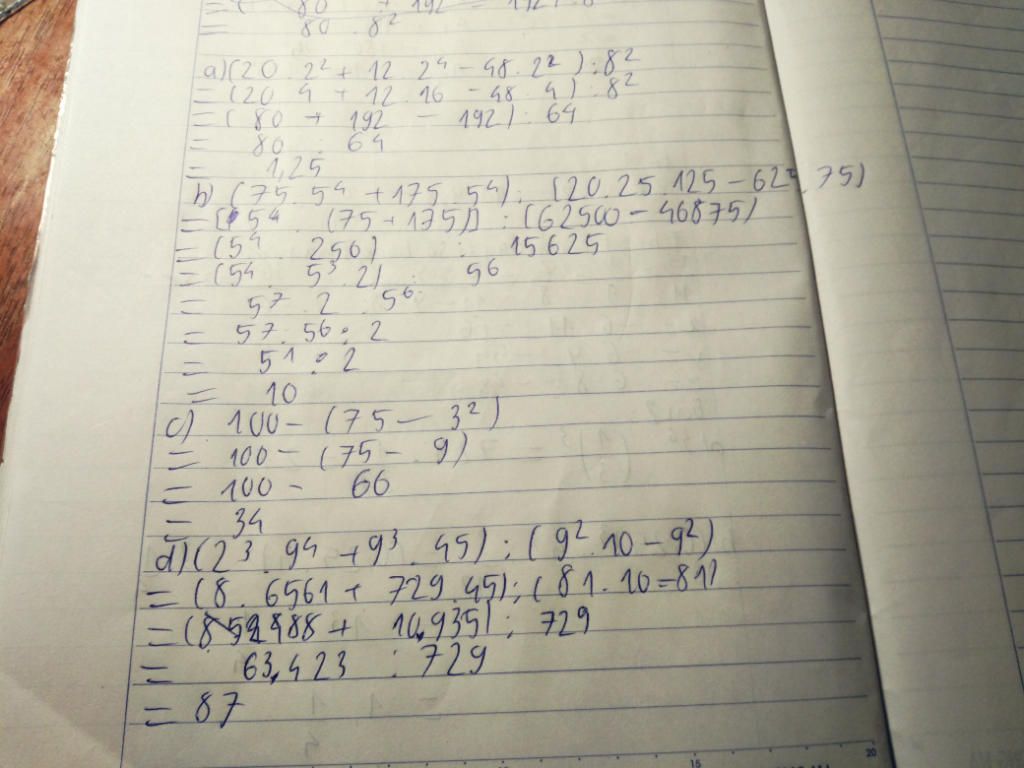 = ( 80 + 192 - 192) : 8
80 : 8²
a) (20 . 2² + 12 . 2⁴ - 48 . 2²) : 8²
= (20 . 4 + 12 . 16 - 48 . 4) : 8²
= ( 80 + 192 - 192) : 64
= 80 : 64
= 1,25
b) (75 . 5⁴ + 175 . 5⁴) : (20 . 25 . 125 - 62⁵ . 75)
= [5⁴ . (75 + 175)] : (62500 - 46875)
= (5⁴ . 250) : 15625
= (5⁴ . 5³ . 2) : 5⁶
= 5⁷ . 2 : 5⁶
= 5⁷ : 5⁶ : 2
= 5¹ : 2
= 10
c) 100 - (75 - 3²)
= 100 - (75 - 9)
= 100 - 66
= 34
d) (2³ . 9⁴ + 9³ . 45) : (9² . 10 - 9²)
= (8 . 6561 + 729 . 45) : (81 . 10 = 81)
= (52488 + 10,935) : 729
= 63,423 : 729
= 87
15 20